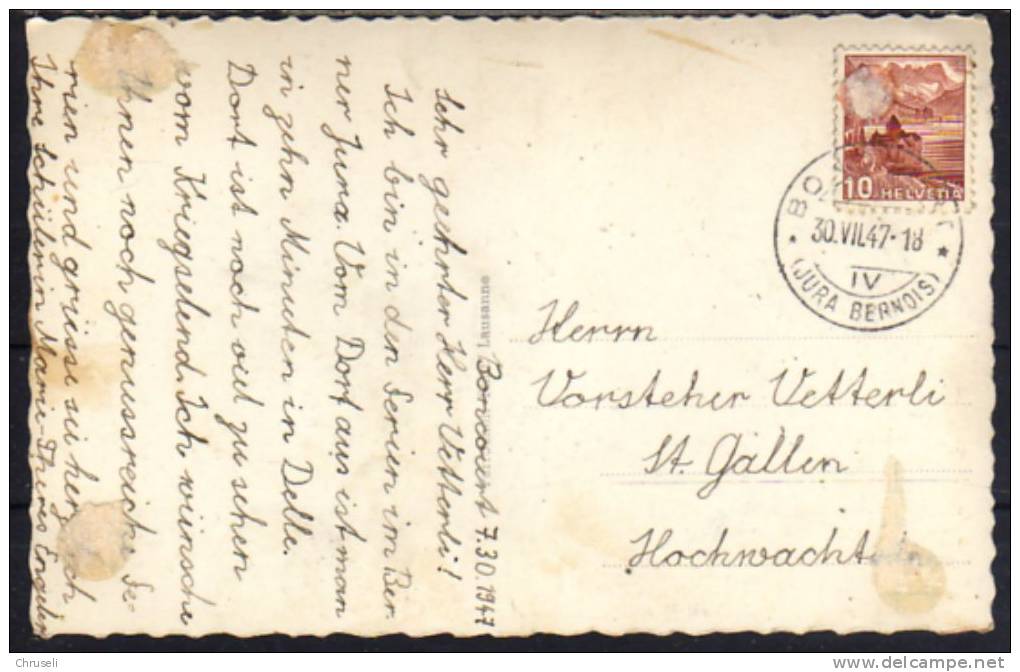 Boncourt 7.30.1947
Sehr geehrter Herr Vetterli!
Ich bin in den Ferien im Ber-
ner Jura. Vom Dorf aus ist man
in zehn Minuten in Delle.
Dort ist noch viel zu sehen
vom Kriegselend. Ich wünsche
Ihnen noch genussreiche Fe-
rien und grüsse sie herzlich
Ihre schülerin Marie-Theres Engeler
Lausanne
10 HELVETIA
30.VII.47-18
IV
(JURA BERNOIS)
Herrn
Vorsteher Vetterli
St. Gallen
Hochwacht
© Chruseli
www.delcampe.net